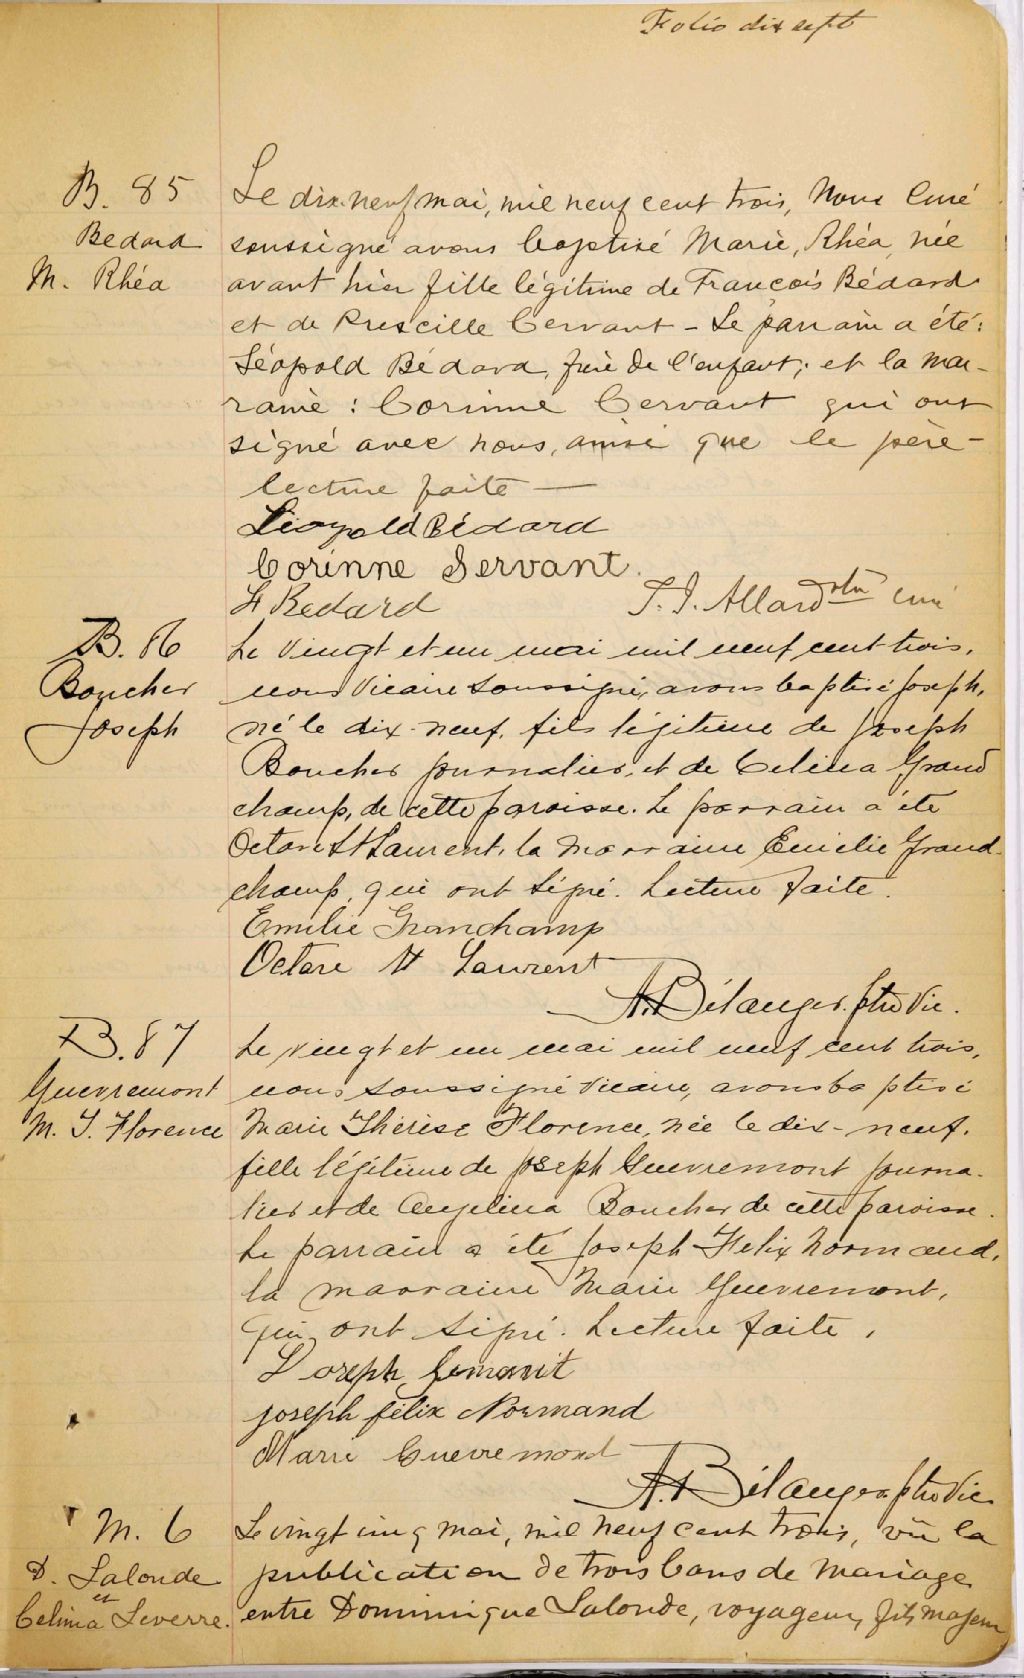 Folio dix sept
B. 85
Bedard
M. Rhéa
Le dix-neuf mai, mil neuf cent trois, Nous Curé
soussigné avons baptisé Marie, Rhéa, née
avant hier fille légitime de François Bédard
et de Prescille Cervant - Le parrain a été:
Léopold Bédard, frère de l'enfant; et la mar-
raine: Corinne Cervant qui ont
signé avec nous, ainsi que le père -
lecture faite —
Léopold Bédard
Corinne Servant.
F Bedard
J. J. Allard ptre curé
B. 86
Boucher
Joseph
Le vingt et un mai mil neuf cent trois,
nous Vicaire soussigné, avons baptisé Joseph,
né le dix-neuf, fils légitime de Joseph
Boucher journalier, et de Celina Grand
champ, de cette paroisse. Le parrain a été
Octave St Laurent, la marraine Emelie Grand-
champ, qui ont signé. Lecture faite.
Emilie Granchamp
Octave St Laurent
A. Bélanger ptre Vic.
B. 87
Guevremont
M. T. Florence
Le vingt et un mai mil neuf cent trois,
nous soussigné vicaire, avons baptisé
Marie Thérèse Florence, née le dix-neuf,
fille légitime de Joseph Guevremont journa-
lier et de Angelina Boucher de cette paroisse.
Le parrain a été Joseph Felix Normand,
la marraine Marie Guevremont,
qui ont signé. Lecture faite,
Joseph
joseph félix Normand
Marie Guevremond
A. Bélanger ptre Vic
M. 6
D. Lalonde
et
Celima Leverre.
Le vingt cinq mai, mil neuf cent trois, vu la
publication de trois bans de mariage
entre Dominique Lalonde, voyageur, fils majeur